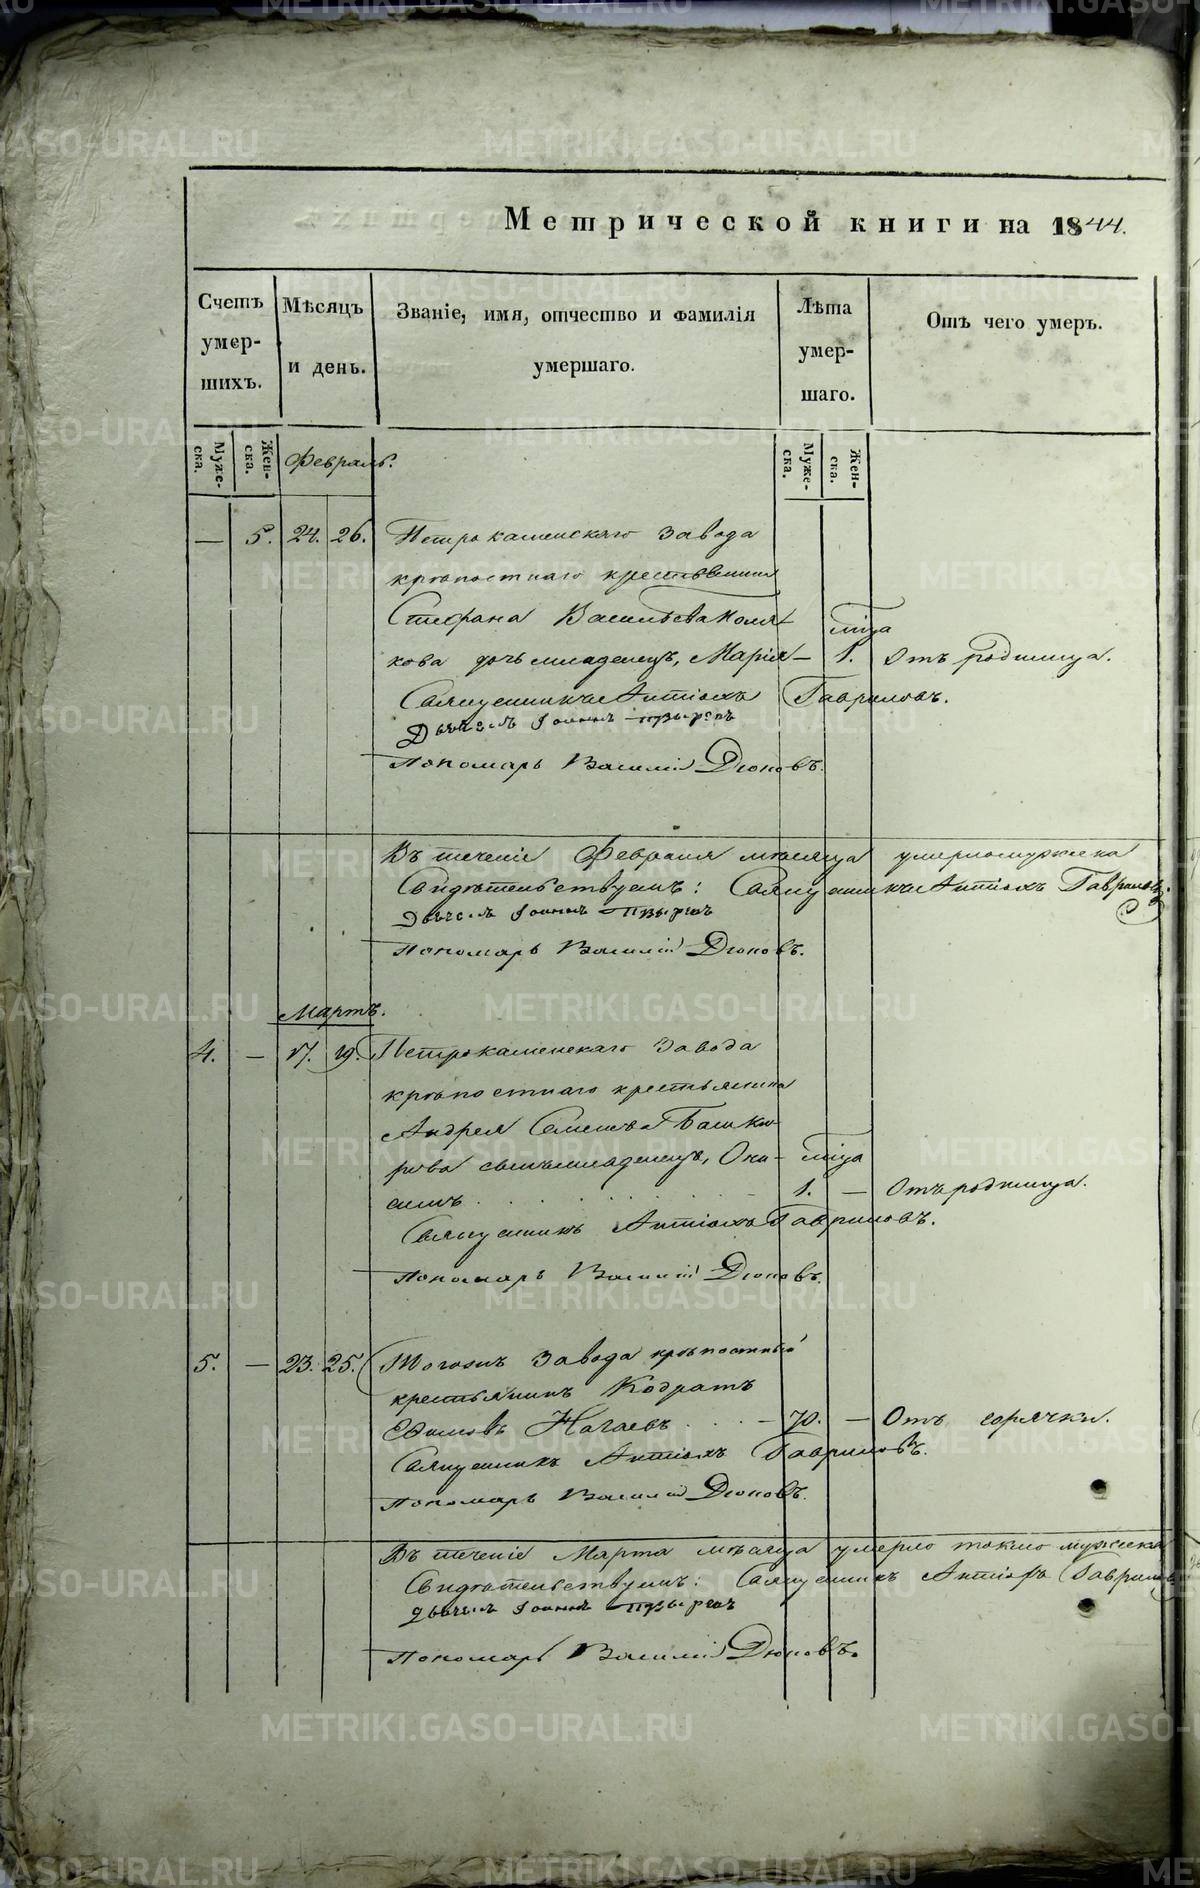 Метрической книги на 1844.
Счетъ умер-шихъ.
Мѣсяцъ и день.
Званіе, имя, отчество и фамилія умершаго.
Лѣта умер-шаго.
Отъ чего умеръ.
Муже-ска.
Жен-ска.
Февраль.
Муже-ска.
Жен-ска.
— 5. 24. 26. Петрокаменскаго Завода
крѣпостнаго крестьянина
Стефана Васильева Поля-
кова дочь младенецъ, Марія — 1. Отъ родимца.
Священникъ Антіохъ Гавриловъ.
Іоаннъ Пузыревъ
Пономарь Василій Дюковъ.
Въ теченіе Февраля мѣсяца умерло
Свидѣтельствуемъ: Священникъ Антіохъ Гавриловъ.
Іоаннъ Пузыревъ
Пономарь Василій Дюковъ.
Мартъ.
4. — 17. 19. Петрокаменскаго Завода
крѣпостнаго крестьянина
Андрея Семенова Башки-
рова сынъ младенецъ, Они-
симъ 1. — Отъ родимца.
Священникъ Антіохъ Гавриловъ.
Пономарь Василій Дюковъ.
5. — 23. 25. Тогожъ Завода крѣпостный
крестьянинъ Кодратъ
Нагаевъ 70. — Отъ горячки.
Священникъ Антіохъ Гавриловъ.
Пономарь Василій Дюковъ.
Въ теченіе Марта мѣсяца умерло токмо мужеска
Свидѣтельствуемъ: Священникъ Антіохъ Гавриловъ
Іоаннъ Пузыревъ
Пономарь Василій Дюковъ.
METRIKI.GASO-URAL.RU